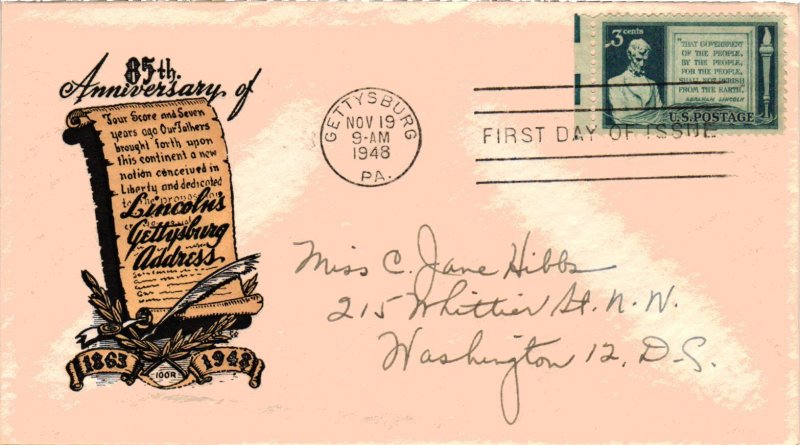 85th.
Anniversary of
Four Score and Seven
years ago Our Fathers
brought forth upon
this continent a new
nation conceived in
Liberty and dedicated
to the proposition
Lincoln's
Gettysburg
Address
1863 1948
100R
GETTYSBURG
NOV 19
9-AM
1948
PA.
3 cents
"THAT GOVERNMENT
OF THE PEOPLE,
BY THE PEOPLE,
FOR THE PEOPLE,
SHALL NOT PERISH
FROM THE EARTH.
ABRAHAM LINCOLN
U.S. POSTAGE
FIRST DAY OF ISSUE
Miss C. Jane Hibbs
215 Whittier St. N.W.
Washington 12, D.C.